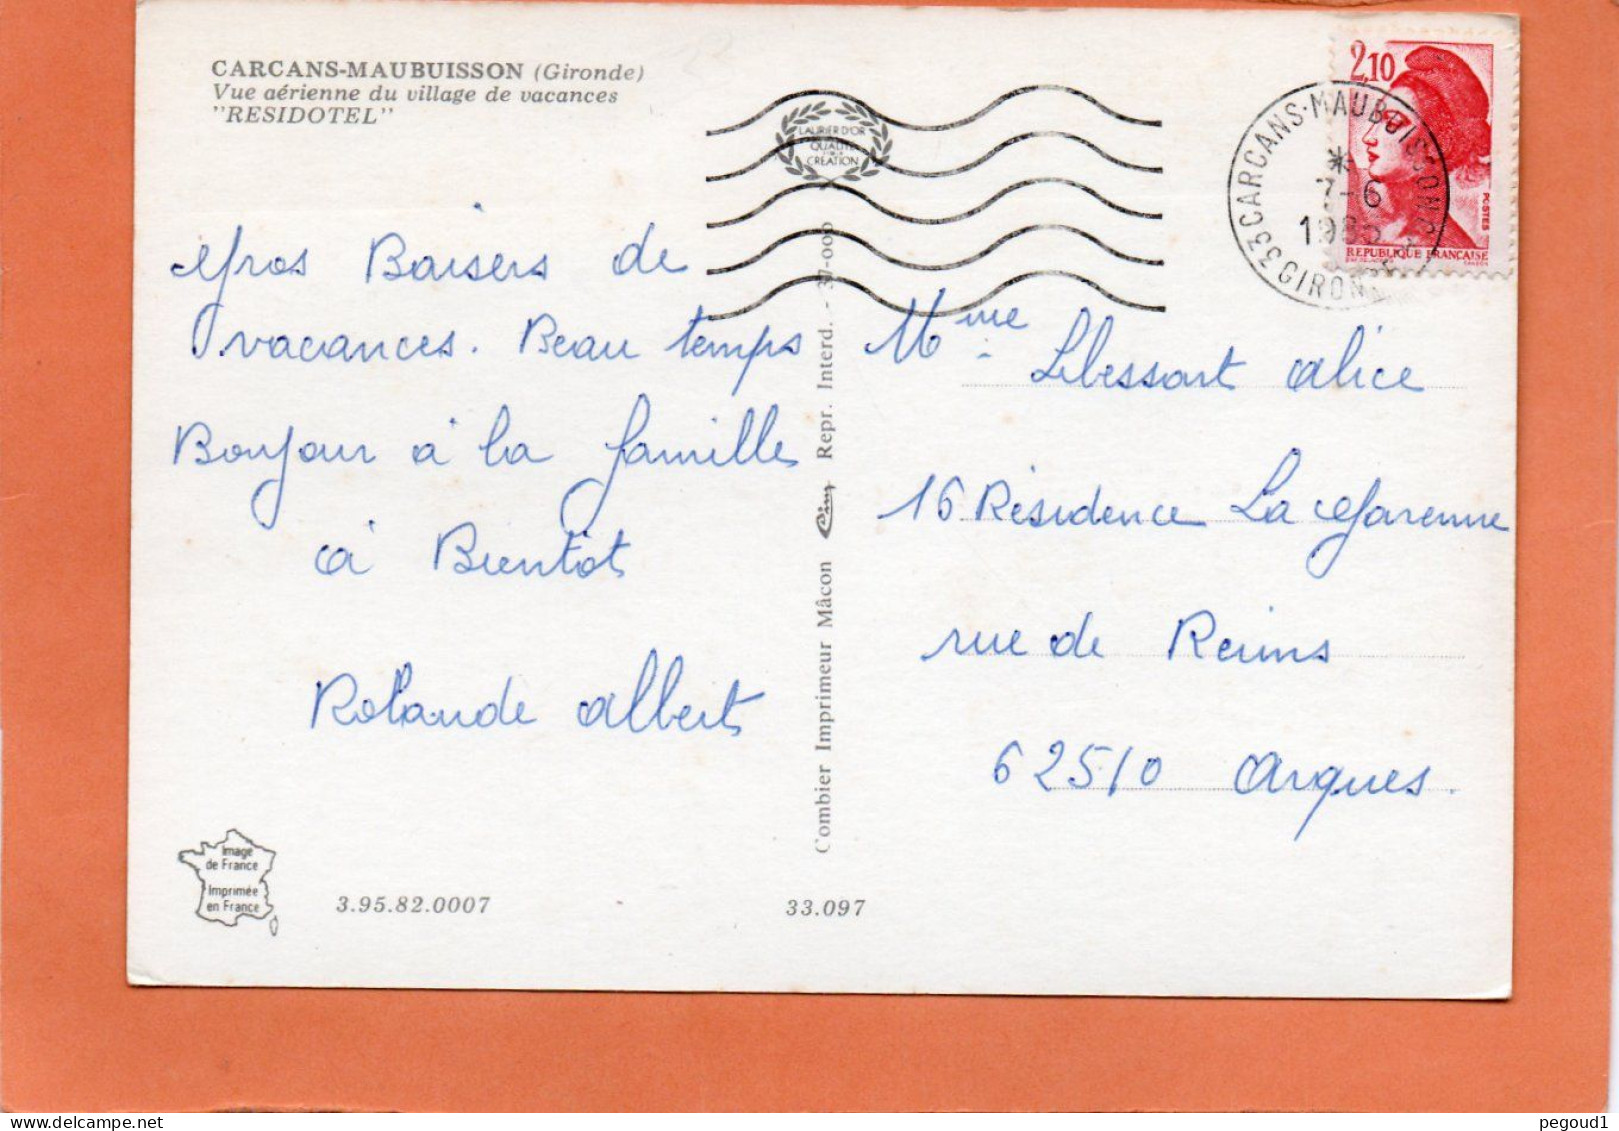 CARCANS-MAUBUISSON (Gironde)
Vue aérienne du village de vacances
"RESIDOTEL"
LAURIER D'OR
QUALITÉ
CRÉATION
2,10
POSTES
REPUBLIQUE FRANÇAISE
33 CARCANS-MAUBUISSON
7-6
GIRONDE
Gros Baisers de
vacances. Beau temps
Bonjour à la famille
à Bientot
Rolande Albert
Mme Lebessart Alice
16 Résidence La Garenne
rue de Reims
62510 Arques.
Combier Imprimeur Mâcon Cim Repr. Interd. - 37-000
Image
de France
Imprimée
en France
3.95.82.0007
33.097
pegoud1